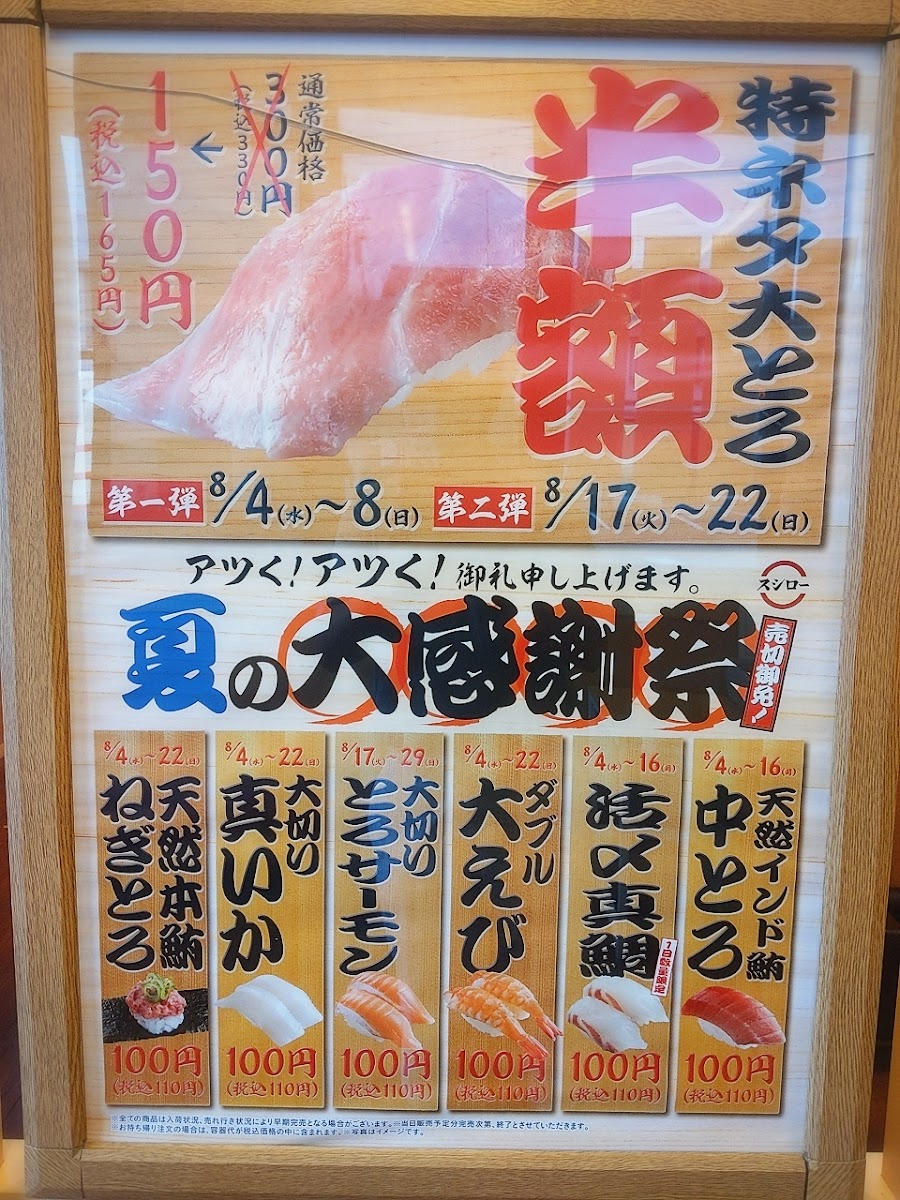 特ネタ大とろ
半額
通常価格
300円
(税込330円)
←
150円
(税込165円)
第一弾 8/4(水)~8(日) 第二弾 8/17(火)~22(日)
アツく!アツく!御礼申し上げます。
スシロー
夏の大感謝祭
売切御免!
8/4(水)~16(月)
天然インド鮪
中とろ
100円
(税込110円)
8/4(水)~16(月)
活〆真鯛
1日数量限定
100円
(税込110円)
8/4(水)~22(日)
ダブル
大えび
100円
(税込110円)
8/17(火)~29(日)
大切り
とろサーモン
100円
(税込110円)
8/4(水)~22(日)
大切り
真いか
100円
(税込110円)
8/4(水)~22(日)
天然本鮪
ねぎとろ
100円
(税込110円)
※全ての商品は入荷状況、売れ行き状況により早期完売となる場合がございます。※当日販売予定分完売次第、終了とさせていただきます。
※お持ち帰り注文の場合は、容器代が税込価格の中に含まれます。※写真はイメージです。